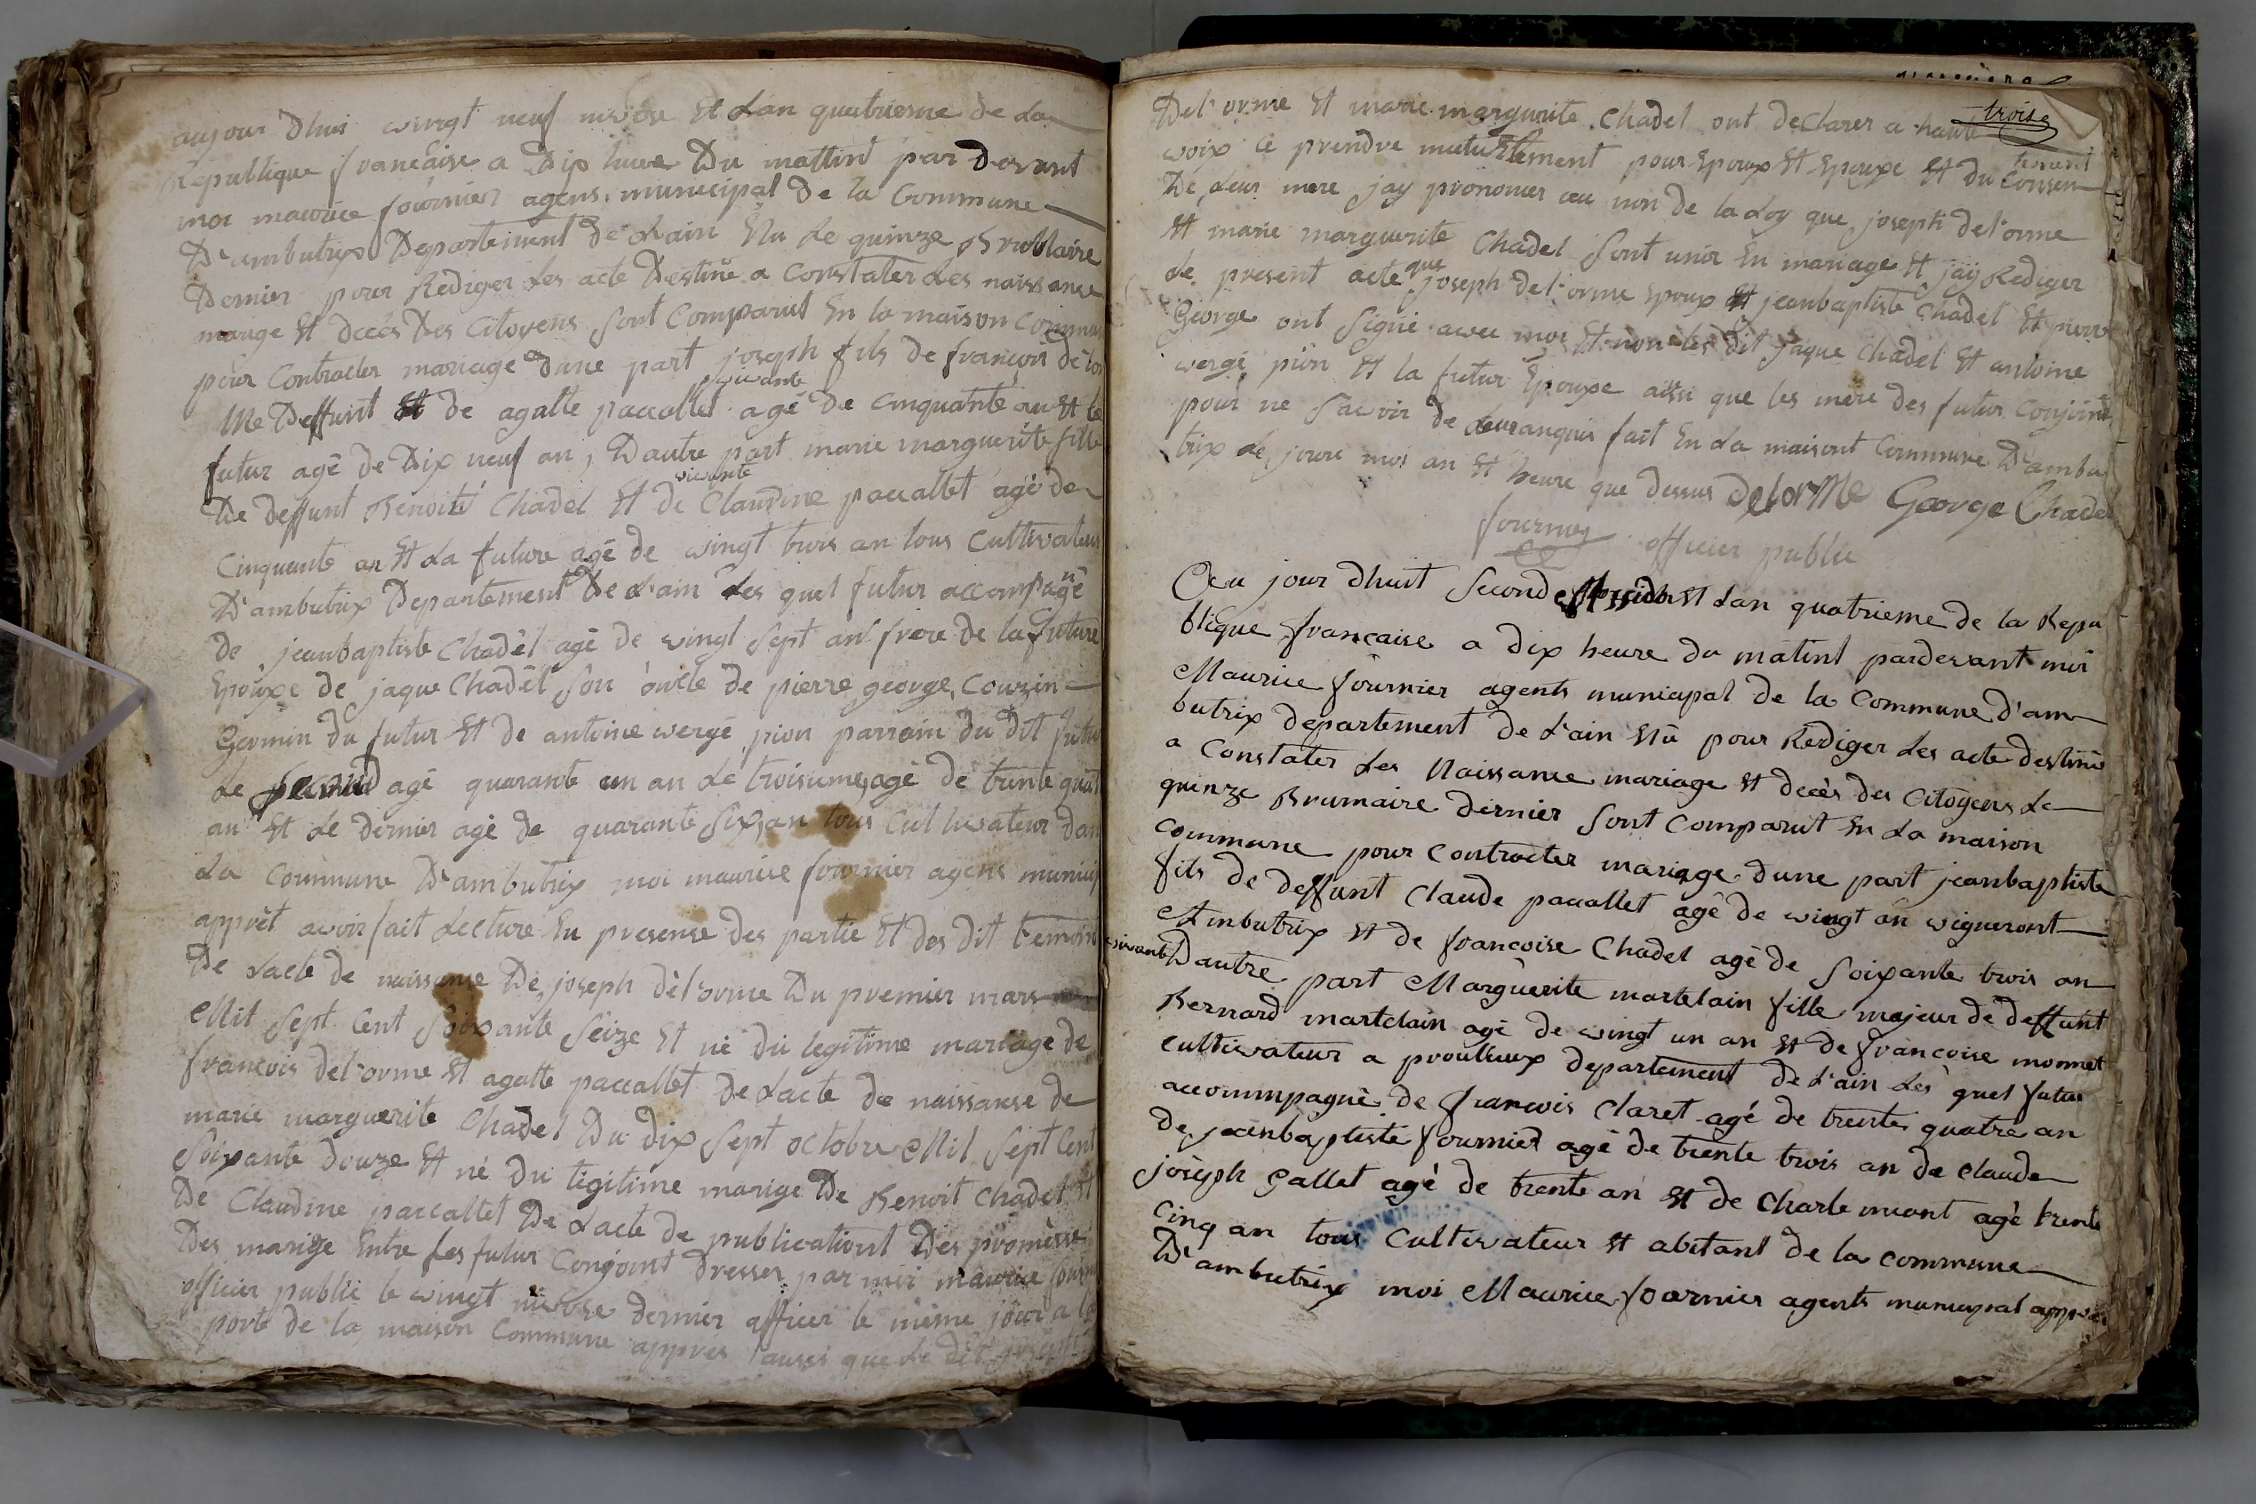 aujour dhui wingt neuf nivose Et Lan quatrieme de La
Republique francaise a Dix heure Du mattint par devant
moi maurice fournier agens municipal de la Commune
D'ambutrix Departement De Lain Elu Le quinze Brublaire
Dernier pour Rediger Les acte Destiné a Constater Les naissance
mariage Et decés Des Citoyens Sont Comparut En la maison Commune
pour Contracter mariage dune part joseph fils de francois de lor
Me Deffunt Et de agatte paccallet vivante agé de cinquante an Et le
futur agé de Dix neuf an, D'autre part marie marguerite fille
De deffunt Benoité Chadel Et de Claudine paccallet vivante agé de
Cinquante an Et La future agé de wingt trois an tous Cultivateur
D'ambutrix Departement De Lain Les quel futur accompagné
de jeanbaptiste Chadel agé de wingt Sept an frere de la future
Epouxe de jaque Chadel Son oncle de pierre george Couzin
Germin du futur Et de antoine wergé pion parrain du dit futur
Le second agé quarante un an Le troisieme agé de trente quat
an Et Le dernier agé de quarante Six an tous Cultivateur dan
La Commune D'ambutrix moi maurice fournier agens municip
apprêt avoir fait Lecture En presense des partie Et des dit temoins
De Lacte de naissance De joseph del'orme Du premier mars
Mil Sept Cent Soixante Seize Et né du legitime mariage de
francois del'orme Et agatte paccallet De Lacte de naissance de
marie marguerite Chadel Du dix Sept octobre Mil Sept Cent
Soixante Douze Et né du legitime marige De Benoit Chadel Et
De Claudine paccallet De Lacte de publicationt Des promesse
Des marige Entre Les futur Conjoint dresser par moi maurice fourni
officier public le wingt nivose dernier afficer le même jour a la
porte de la maison Commune appres ausi que Le dit joseph
troise
Del'orme Et marie marguerite Chadel ont declarer a haute
woix ce prendre mutuellement pour Epoux Et Epouxe Et du Consen
tement
De Leur mere jay prononcer au non de la Loy que joseph del'orme
Et marie marguerite Chadel Sont unir En mariage Et jay Rediger
Le present acte que joseph del'orme Epoux Et jeanbaptiste Chadel Et pierre
George ont Signé avec moi Et non les dit jaque Chadel Et antoine
wergé pion Et la futur Epouxe ainsi que les mere des futur Conjoint
pour ne Savoir de Leur anquis fait En La maisont Commune D'ambu
trix Le jour moi an Et heure que dessus delorMe George Chadel
fournier officier public
Au jour dhuit Second Et Lan quatrieme de la Repu
blique francaise a dix heure du matint pardevant moi
Maurice fournier agents municipal de la Commune d'am
butrix departement de L'ain Elu pour Rediger Les acte destiné
a Constater Les Naissance mariage Et decès des Citoyens Le
quinze Brumaire dernier Sont Comparut En La maison
Commune pour Contracter mariage dune part jeanbaptiste
fils de deffunt Claude paccallet agé de wingt an wigneront
Ambutrix Et de francoise Chadel agé de Soixante trois an
vivante D'autre part Marguerite martelain fille majeur de deffunt
Bernard martelain agé de wingt un an Et de francoise monnet
Cultivateur a proullieux departement de L'ain Les quel futur
accommpagné de francois Claret agé de trente quatre an
De jeanbaptiste fournier agé de trente trois an de Claude
joseph Gallet agé de trente an Et de Charle miant agé trente
Cinq an tous Cultivateur Et abitant de la commune
D'ambutrix moi Maurice fournier agents municipal